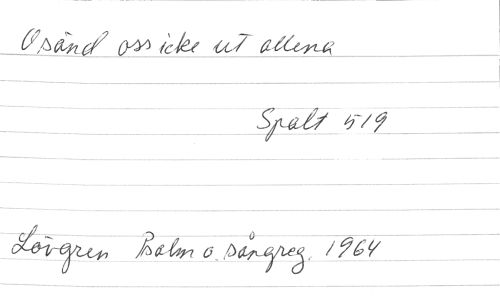 O sänd oss icke ut allena
Spalt 519
Lövgren Psalm o. sångreg. 1964